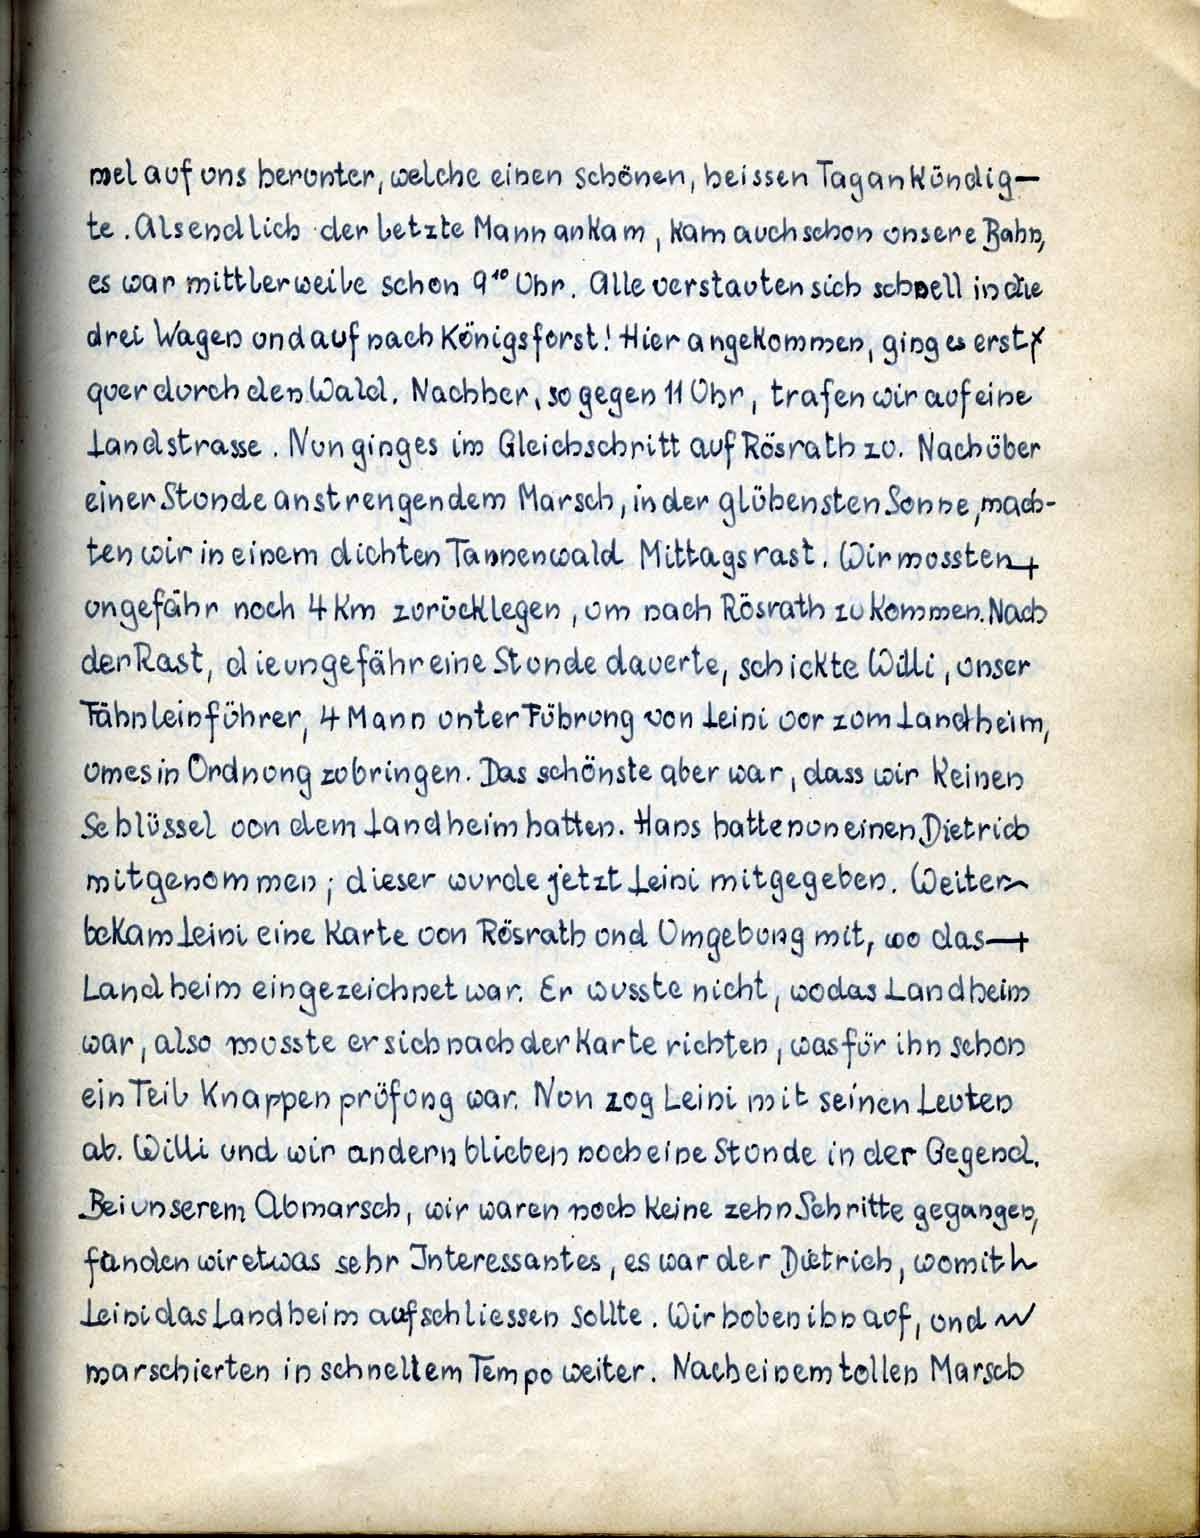 mel auf uns herunter, welche einen schönen, heissen Tag ankündig-
te. Als endlich der letzte Mann ankam, kam auch schon unsere Bahn,
es war mittlerweile schon 9¹⁰ Uhr. Alle verstauten sich schnell in die
drei Wagen und auf nach Königsforst! Hier angekommen, ging es erst
quer durch den Wald. Nachher, so gegen 11 Uhr, trafen wir auf eine
Landstrasse. Nun ging es im Gleichschritt auf Rösrath zu. Nach über
einer Stunde anstrengendem Marsch, in der glühensten Sonne, mach-
ten wir in einem dichten Tannenwald Mittagsrast. Wir mussten
ungefähr noch 4 Km zurücklegen, um nach Rösrath zu kommen. Nach
der Rast, die ungefähr eine Stunde dauerte, schickte Willi, unser
Fähnleinführer, 4 Mann unter Führung von Leini vor zum Landheim,
um es in Ordnung zu bringen. Das schönste aber war, dass wir keinen
Schlüssel von dem Landheim hatten. Hans hatte nun einen Dietrich
mitgenommen; dieser wurde jetzt Leini mitgegeben. Weiter
bekam Leini eine Karte von Rösrath und Umgebung mit, wo das
Landheim eingezeichnet war. Er wusste nicht, wo das Landheim
war, also musste er sich nach der Karte richten, was für ihn schon
ein Teil Knappenprüfung war. Nun zog Leini mit seinen Leuten
ab. Willi und wir andern blieben noch eine Stunde in der Gegend.
Bei unserem Abmarsch, wir waren noch keine zehn Schritte gegangen,
fanden wir etwas sehr Interessantes, es war der Dietrich, womit
Leini das Landheim aufschliessen sollte. Wir hoben ihn auf, und
marschierten in schnellem Tempo weiter. Nach einem tollen Marsch